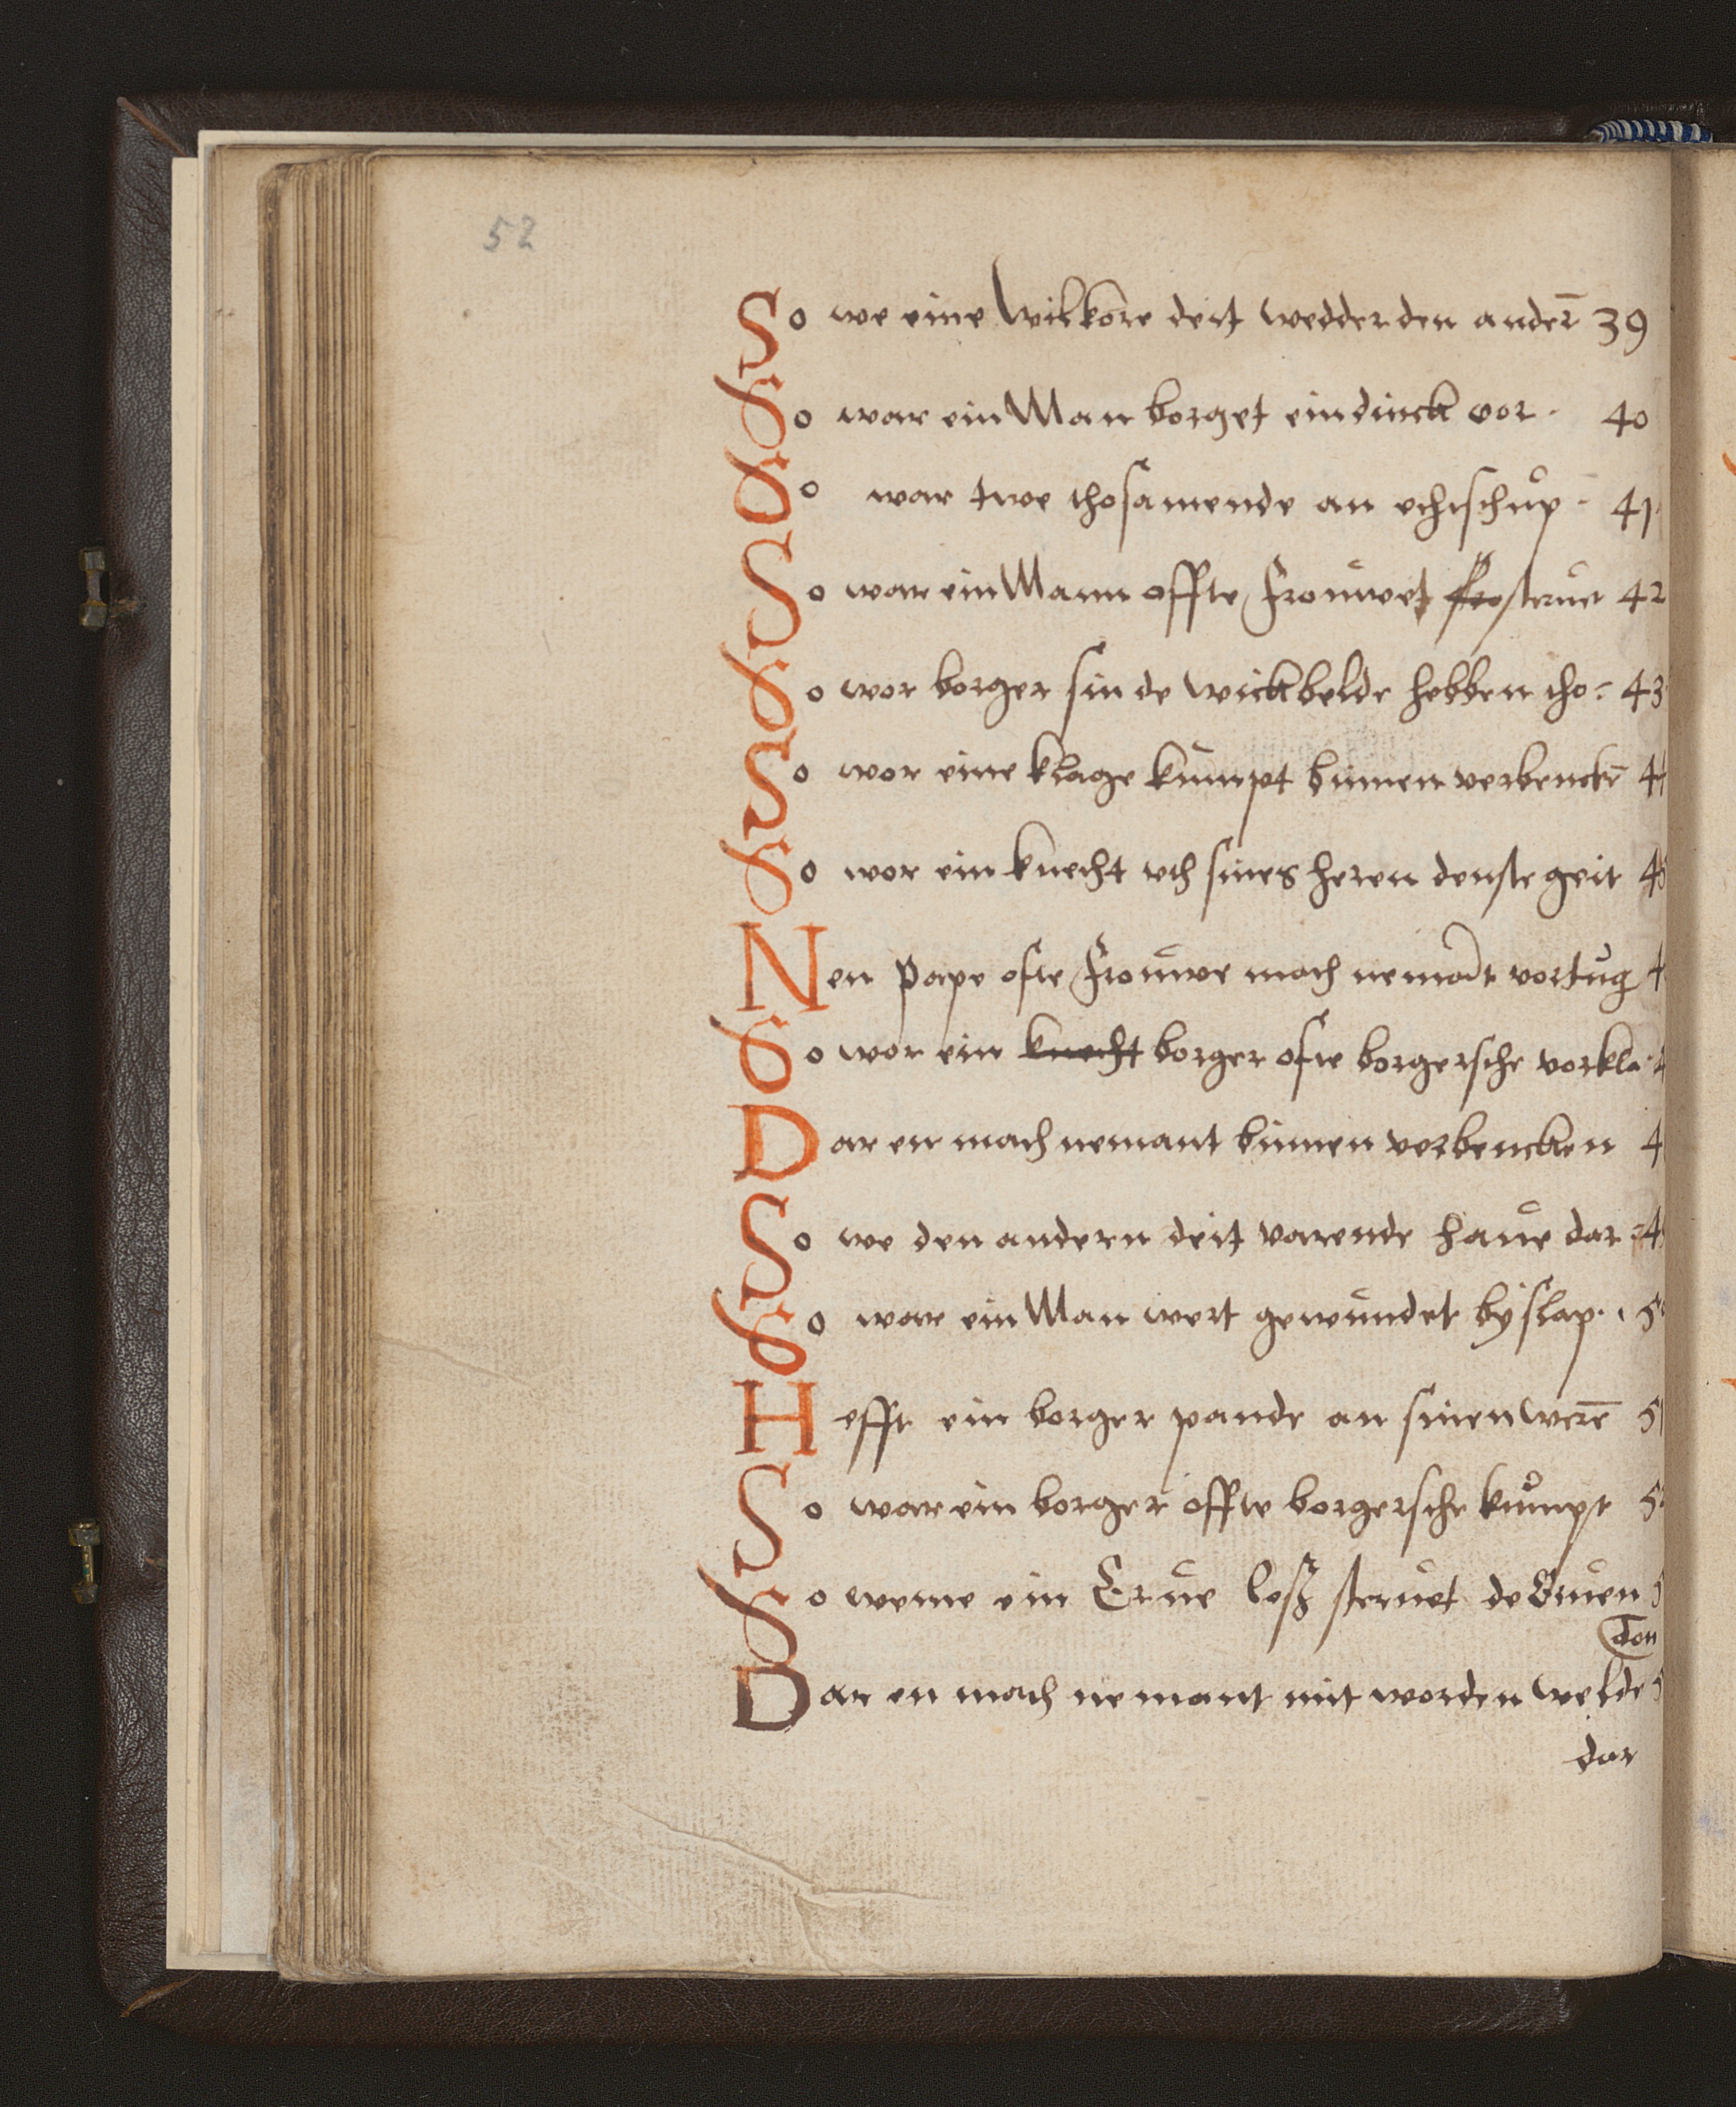 52
So we eine Wilkore deit wedder den ander̄ 39
So war ein Man borget ein dinck vor · 40
So war twe thosamende an echtschup - 41
So war ein Mann offte frouwet steruet 42
So wor borger sin de wickbelde hebben tho = 43
So wor eine klage kumpt binnen verbenckē 44
So wor ein knecht vth sines heren denste geit 45
Nen pape ofte frouwe mach nemādt vortug 4
So wor ein knecht borger ofte borgersche vorkla
Dar en mach nemant binnen verbencken 4
So we den andern deit varende haue dar = 4
So war ein Man wert gewundet by slap · 5
Hefft ein borger pande an sinen werē 51
So war ein borger offte borgersche kumpt 5
So weme ein Erue loß steruet de Eruen 5
Dar en mach nemant mit worden welde 5
dar